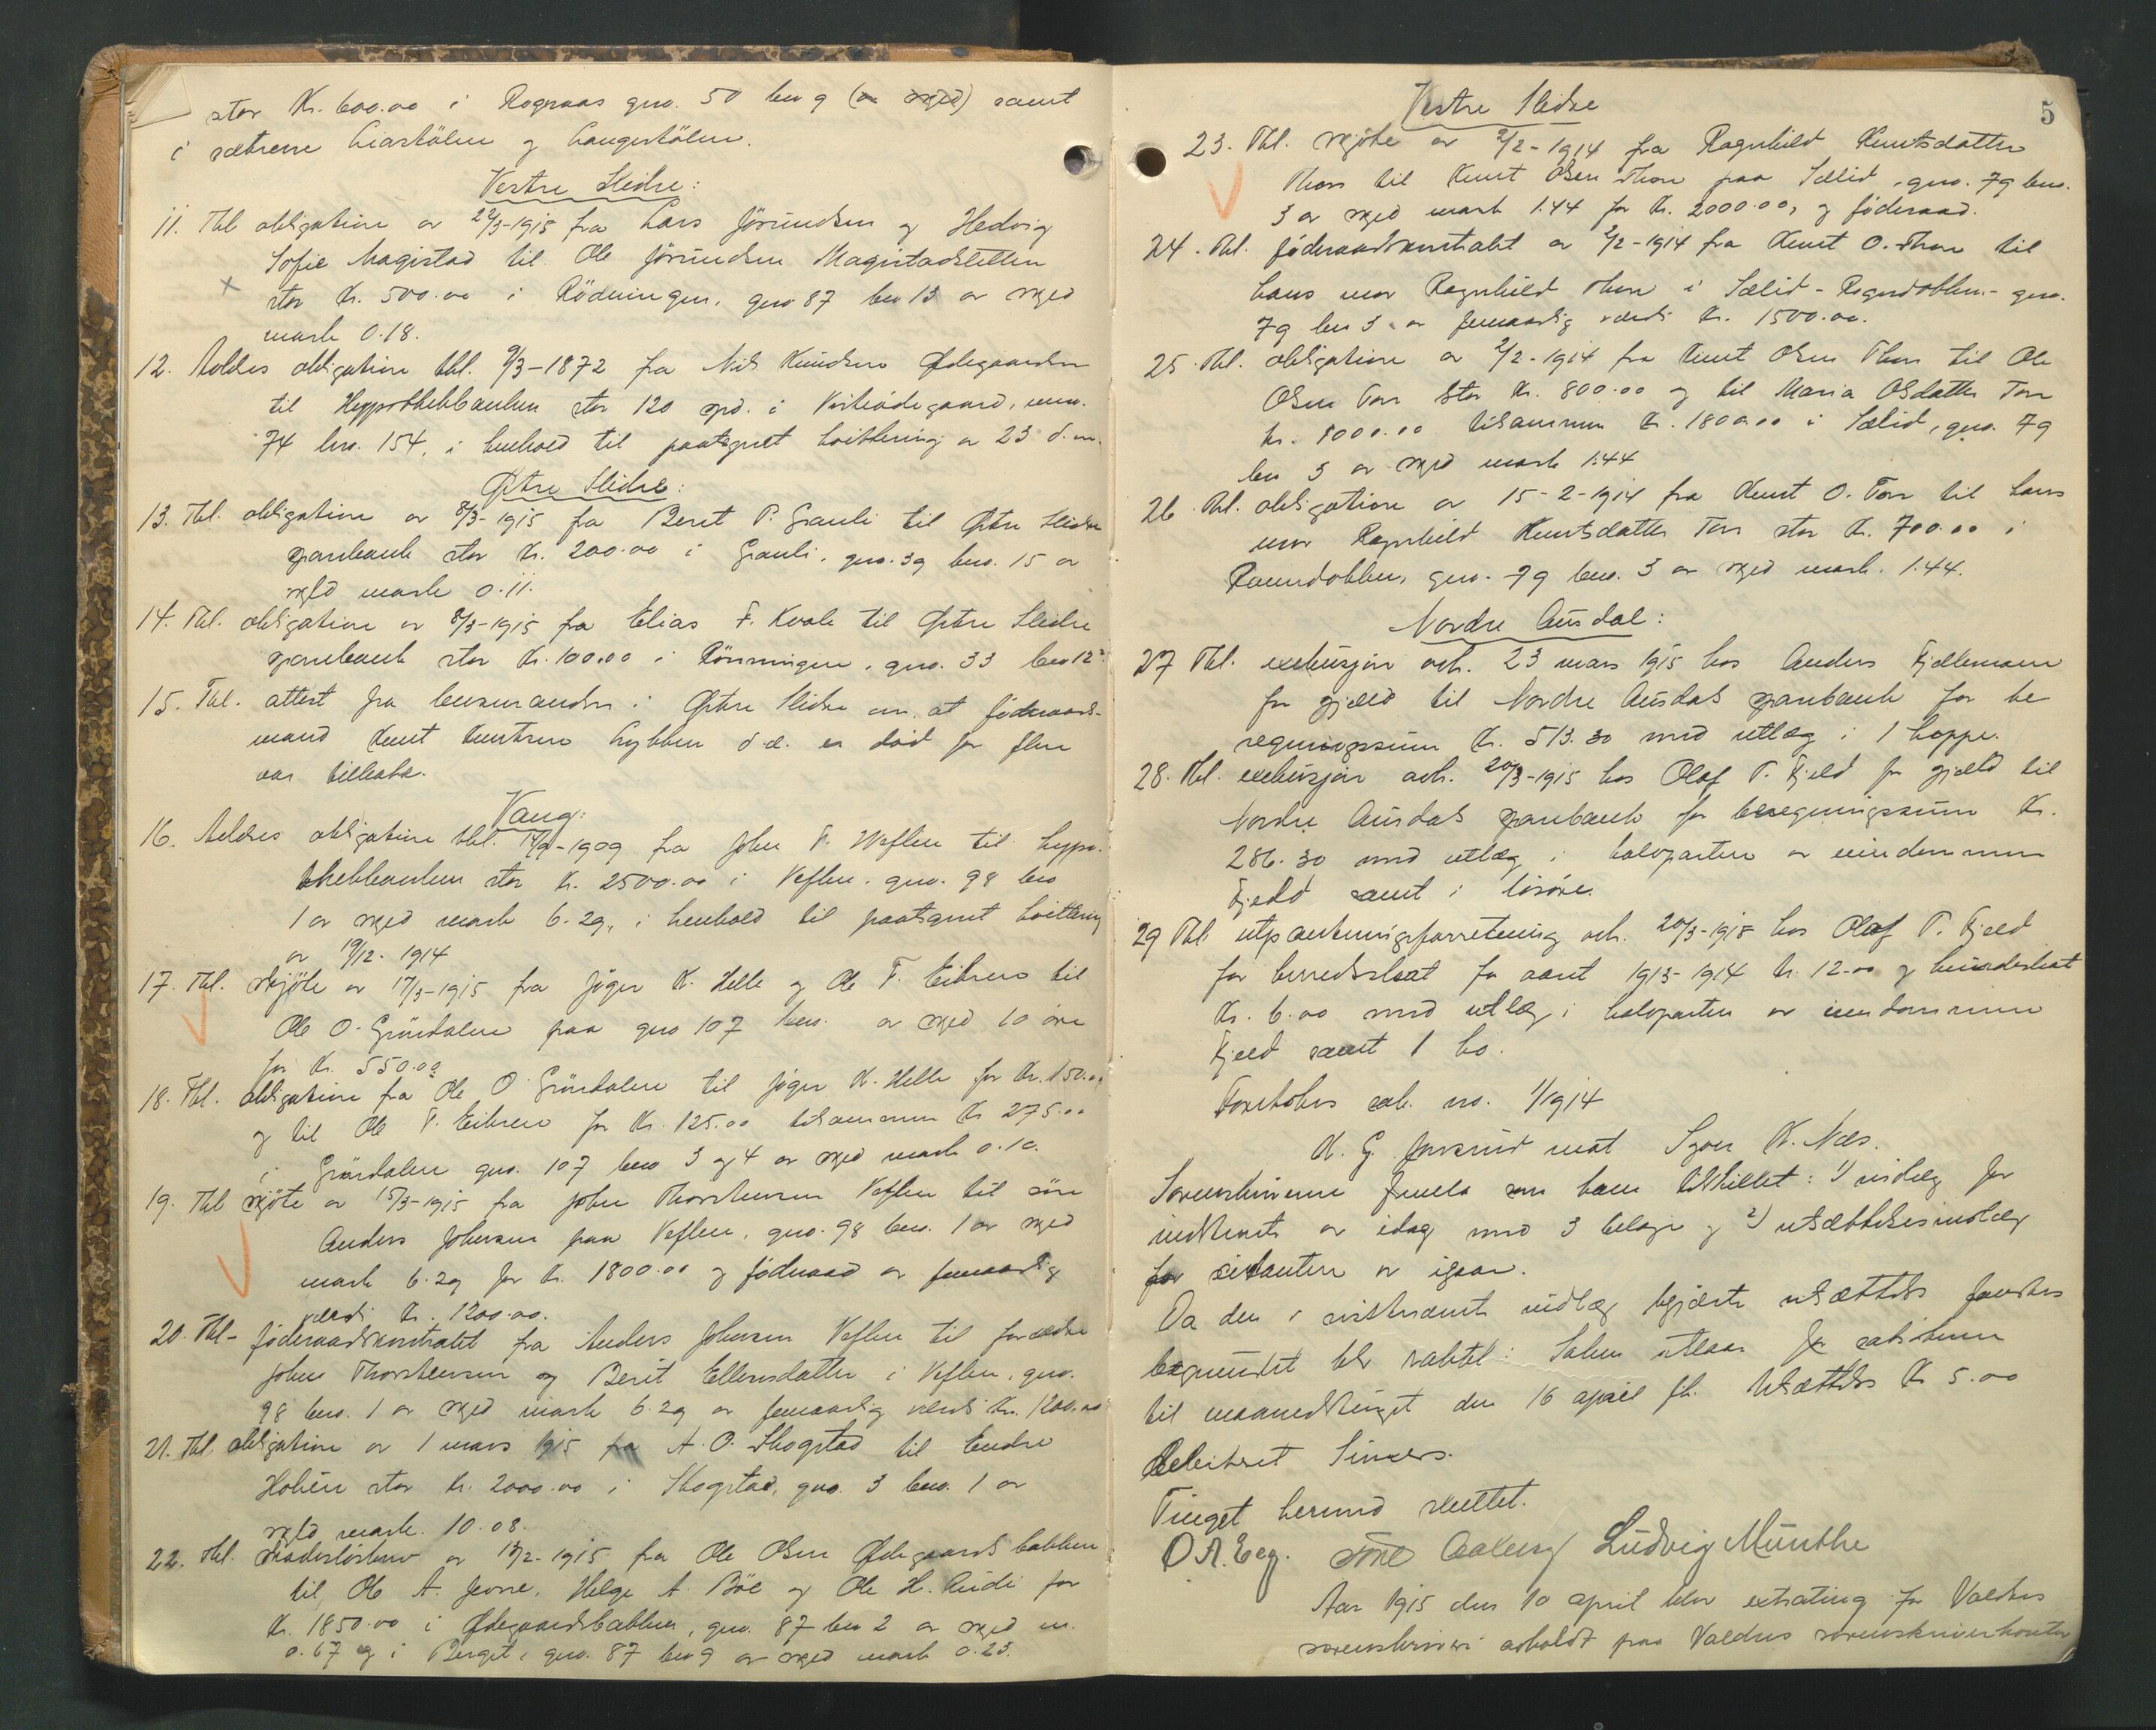 stor Kr. 600.00 i Rognaas gno. 50 bno 9 (a skyld) samt
i sætrene Liastölen og Langestölen.
Vestre Slidre:
11. Thl obligation av 22/3-1915 fra Lars Jörundsen og Hedvig
Sofie Magistad til Ole Jörundsen Magistadsletten
stor Kr. 500.00 i Rödningen, gno 87 bno 13 av skyld
mark 0.18.
12. Avlæses obligation thl. 9/3-1872 fra Nils Knudsen Ødegaarden
til Hypothekbanken stor 120 spd. i Ødegaard, mno.
74 lno. 154, i henhold til paategnet kvittering av 23 d.m.
Østre Slidre:
13. Thl. obligation av 8/3-1915 fra Berit P. Grauli til Østre Slidre
sparebank stor Kr. 200.00 i Grauli, gno. 39 bno. 15 av
skyld mark 0.11.
14. Thl. obligation av 8/3-1915 fra Elias F. Kvale til Østre Slidre
sparebank stor Kr. 100.00 i Rönningen, gno. 33 bno 12.
15. Thl. attest fra lensmanden i Østre Slidre om, at föderaads-
mand Knut Knutsen Lykken d.æ. er död for flere
aar tilbake.
Vang:
16. Avlæses obligation thl. 14/9-1909 fra John T. Weflen til hypo-
thekbanken stor Kr. 2500.00 i Veflen, gno. 98 bno
1 av skyld mark 6.29, i henhold til paategnet kvittering
av 19/12-1914
17. Thl. skjöte av 17/3-1915 fra Jöger K. Helle og Ole T. Eikren til
Ole O. Gröndalen paa gno 107 bno. av skyld 10 öre
for Kr. 550.00
18. Thl. obligation fra Ole O Gröndalen til Jöger K. Helle for Kr. 150.00
og til Ole T. Eikren for Kr. 125.00 tilsammen Kr 275.00
i Gröndalen gno. 107 bno 3 og 4 av skyld mark 0.10.
19. Thl skjöte av 15/3-1915 fra John Thorstensen Veflen til sön
Anders Johnsen paa Veflen, gno. 98 bno. 1 av skyld
mark 6.29 for Kr. 1800.00 og föderaad av femaarlig
værdi Kr. 1200.00.
20. Thl- föderaadskontrakt fra Anders Johnsen Veflen til forældre
John Thorstensen og Berit Ellensdatter i Veflen, gno.
98 bno. 1 av skyld mark 6.29 av femaarlig værdi Kr. 1200.00
21. Thl obligation av 1 mars 1915 fra A. O. Skogstad til Endre
Holien stor Kr. 2000.00 i Skogstad, gno. 3 bno. 1 av
skyld mark. 10.08.
22. Thl. skadeslösbrev av 13/2-1915 fra Ole Olsen Ødegaardsbakken
til Ole A. Jevne, Helge A. Böe og Ole H. Rudi for
Kr. 1850.00 i Ødegaardsbakken, gno. 87 bno 2 av skyld m.
0.67 og i Berget, gno. 87 bno 9 av skyld mark 0.23.
5
Vestre Slidre
23. Thl. skjöte av 2/2-1914 fra Ragnhild Knutsdatter
Thon til Knut Olsen Thon paa Sælid, gno. 79 bno.
3 av skyld mark 1.44 for Kr. 2000.00, og föderaad.
24. Thl. föderaadskontrakt av 2/2-1914 fra Knut O. Thon til
hans mor Ragnhild Thon i Sælid - gno.
79 bno 3 av femaarlig værdi Kr. 1500.00.
25. Thl. obligation av 2/2-1914 fra Knut Olsen Thon til Ole
Olsen Ton stor Kr. 800.00 og til Maria Olsdatter Ton
Kr. 1000.00 tilsammen Kr. 1800.00 i Sælid, gno. 79
bno 3 av skyld mark 1.44
26. Thl. obligation av 15-2-1914 fra Knut O. Ton til hans
mor Ragnhild Knutsdatter Ton stor Kr. 700.00 i
gno. 79 bno. 3 av skyld mark. 1.44.
Nordre Aurdal:
27 Thl. exekusjon avh. 23 mars 1915 hos Anders Fjellemoen
for gjæld til Nordre Aurdals sparebank for be
regningssum Kr. 513.30 med utlæg i 1 hoppe.
28. Thl. exekusjon avh. 20/3-1915 hos Olaf T. Fjeld for gjæld til
Nordre Aurdals sparebank for beregningssum Kr.
286.30 med utlæg i halvparten av eiendommen
Fjeld samt i lösöre.
29 Thl utpantningsforretning avh. 20/3-1915 hos Olaf T. Fjeld
for herredsskat for aaret 1913-1914 Kr. 12.00 og hundeskat
Kr. 6.00 med utlæg i halvparten av eiendommen
Fjeld samt 1 ko.
Foretokes sak. no. 1/1914
K. G. mot Syver K. Næs.
Sorenskriveren fremla som ham tilstillet: 1) indlæg for
av idag med 3 bilage og 2) utsættelsesindlæg
for citanten av igaar.
Da den i sistnævnte indlæg begjærte utsættelse fandtes
begrundet blev vaktet: Saken utstaar for
til maanedstinget den 16 april fk. Utsættelse Kr 5.00
debitert
Tinget hermed sluttet.
O. A. Eeg. Tore Aaberg Ludvig Münthe
Aar 1915 den 10 april blev extrating for Valdres
sorenskriveri avholdt paa Valdres sorenskriverkontor